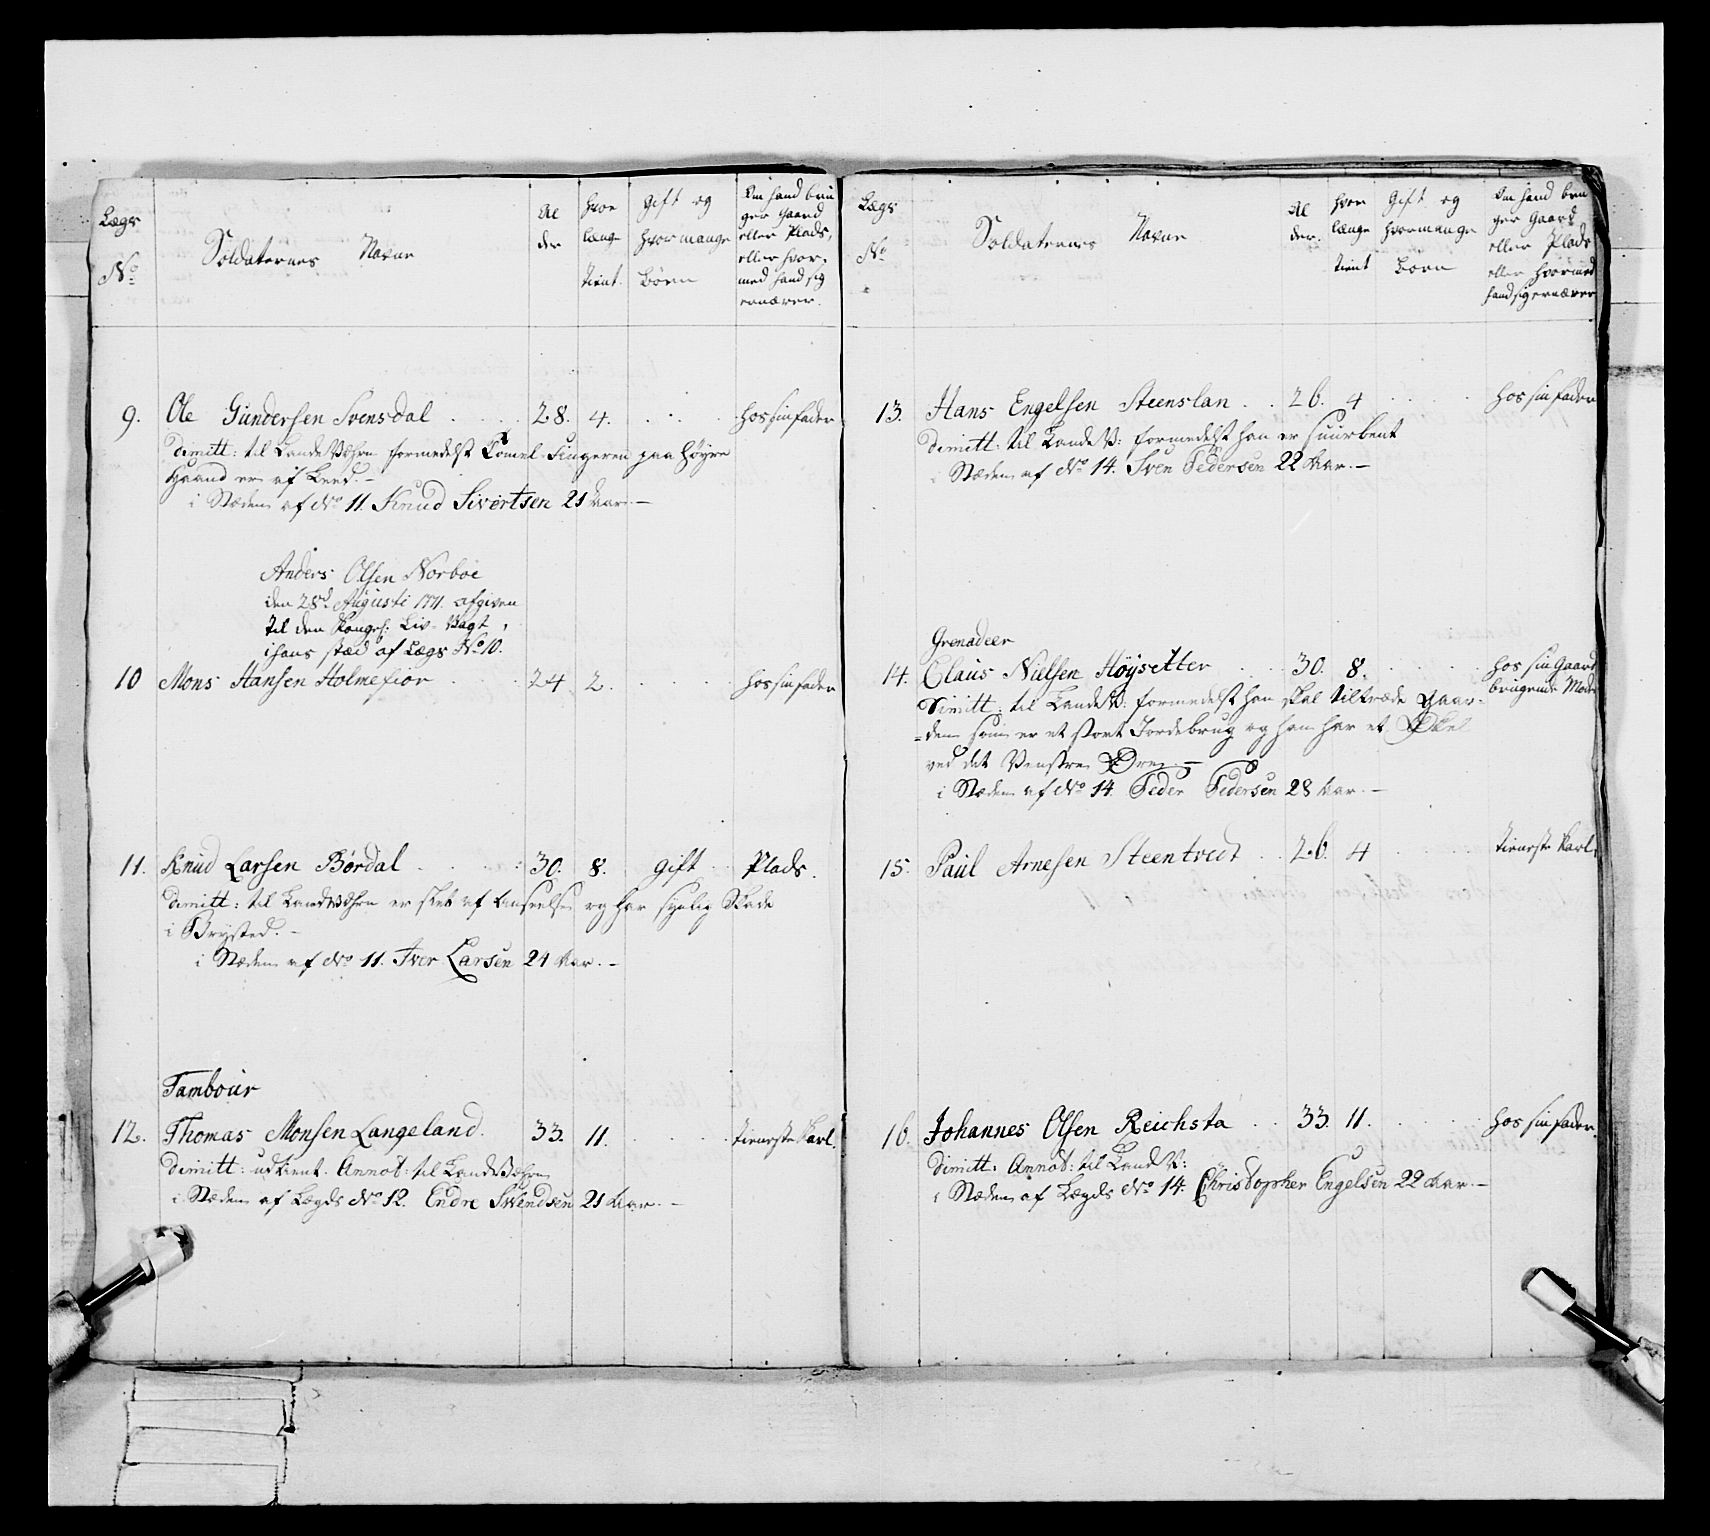 Lægs
No
Soldaternes Navne
Al
der
hvor
længe
tient.
gift og
hvormange
Börn
Om hand bru
ger Gaard
eller Plads,
eller hvor,
med hand sig
ernærer.
9. Ole Gundersen Svensdal 28. 4. hos sin fader
Dimitt: til Lande Wærn formedelst Tomel Fingeren paa Høyre
Haand er af Leed.
i Stæden af No 11. Knud Sivertsen 21 Aar. —
Anders Olsen Norböe
den 28d Augusti 1771. afgiven
til den Kongel: Liv-Vagt,
i hans stæd af Lægs No 10.
10 Mons Hansen Holmefior 24 2. hos sin fader
11. Knud Larsen Børdal 30. 8. gift Plads.
Dimitt: til Landwærn er slet af Anseelse og har synlig Skade
i Brysted. —
i Stæden af No 11. Iver Larsen 24 Aar. —
Tambour
12. Thomas Monsen Langeland. 33. 11. tieneste Karl.
Dimitt: udtient. Annot: til Landwærn
i Stæden af Lægds No 12. Endre Swendsen 21 Aar. —
Lægs
No
Soldaternes Navne
Al
der.
hvor
længe
tient
Gift og
hvormange
Börn
Om hand bru
ger Gaard
eller Plads
eller hvormed
hand sig ernærer
13. Hans Engelsen Steenslan 26. 4 hos sin fader
Dimitt: til Lande W: formedelst han er suurbent
i Stæden af No 14. Sven Pedersen 22 Aar. —
Grenadeer
14. Claus Nielsen Höysetter 30. 8. hos sin Gaard
brugende Moder
Dimitt: til Lande W: formedelst han skal tiltræde Gaar-
=den som er et stort Jordebrug og han har et
ved det Venstre Øre. —
i Stæden af No 14. Peder Pedersen 28 Aar. —
15. Paul Arnesen Steentvedt 26. 4 tieneste Karl.
16. Johannes Olsen Reichsta 33. 11. hos sin fader.
Dimitt: Annot: til Land W:
i Stæden af Lægds No 14. Christopher Engelsen 22 Aar. —